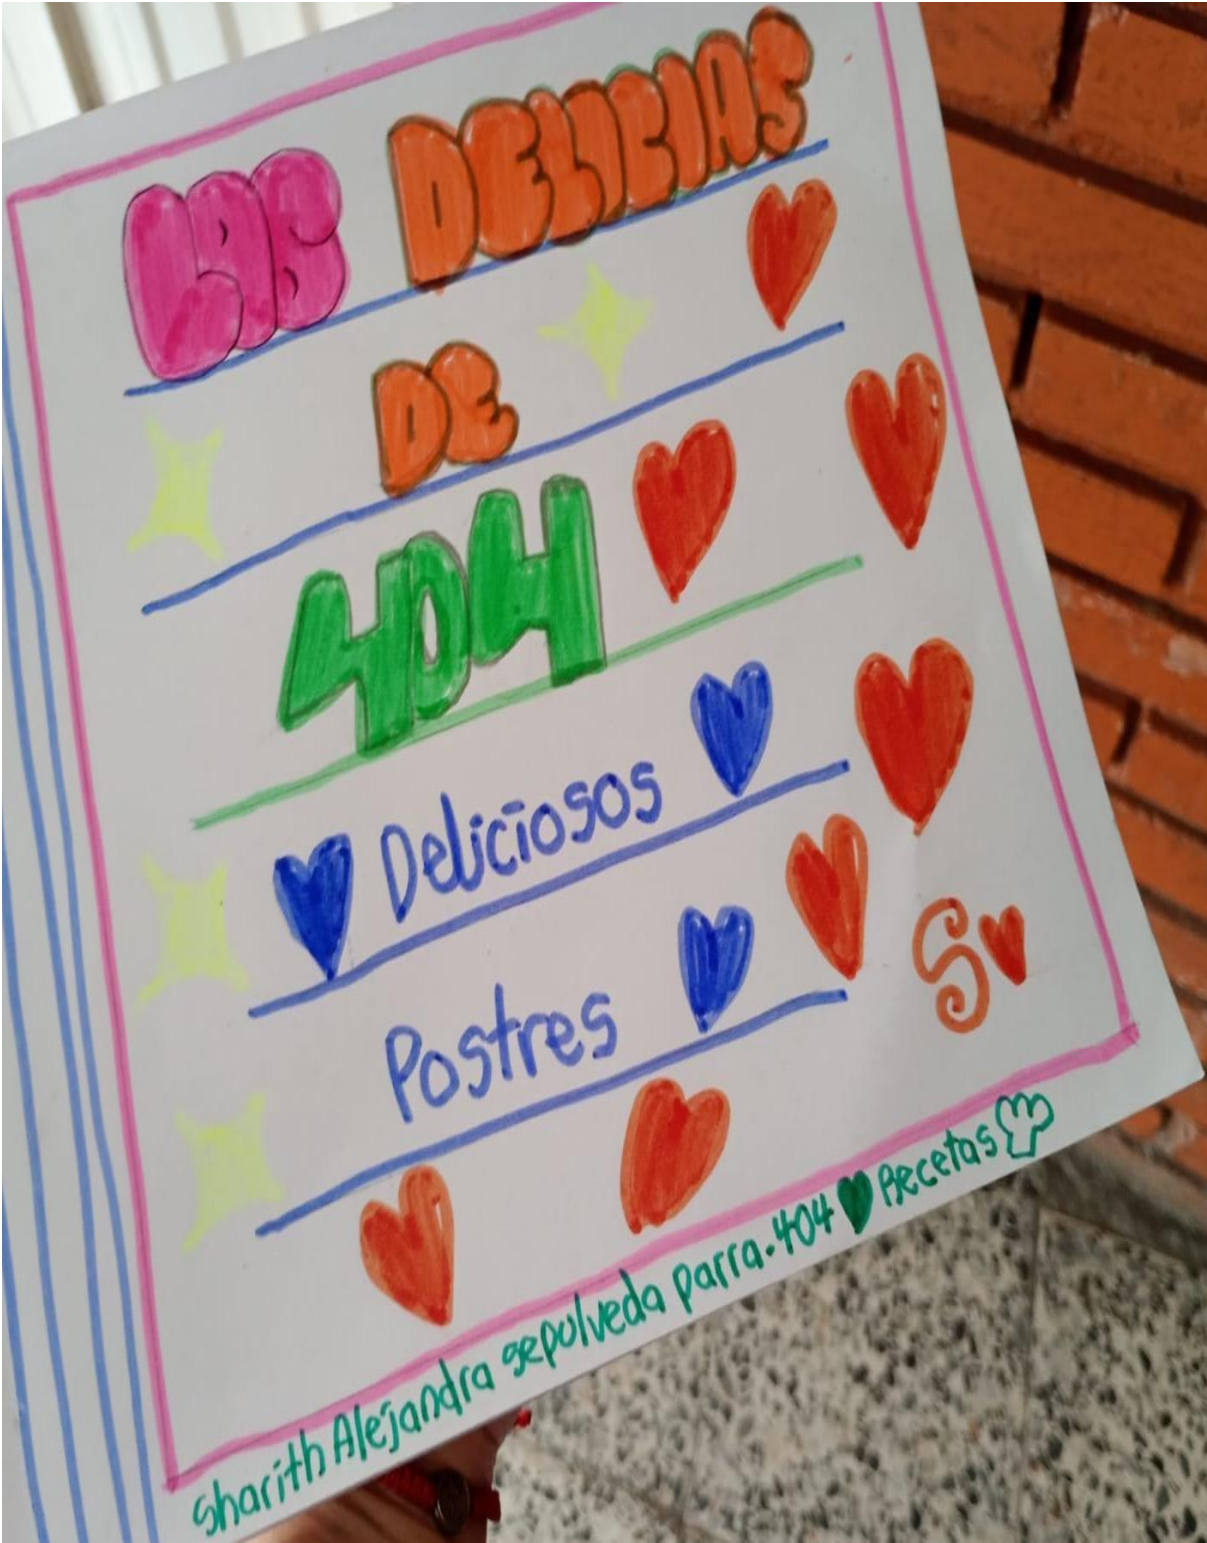 LAS DELICIAS
DE
404
Deliciosos
Postres
S
sharith Alejandra sepulveda parra.404 Recetas